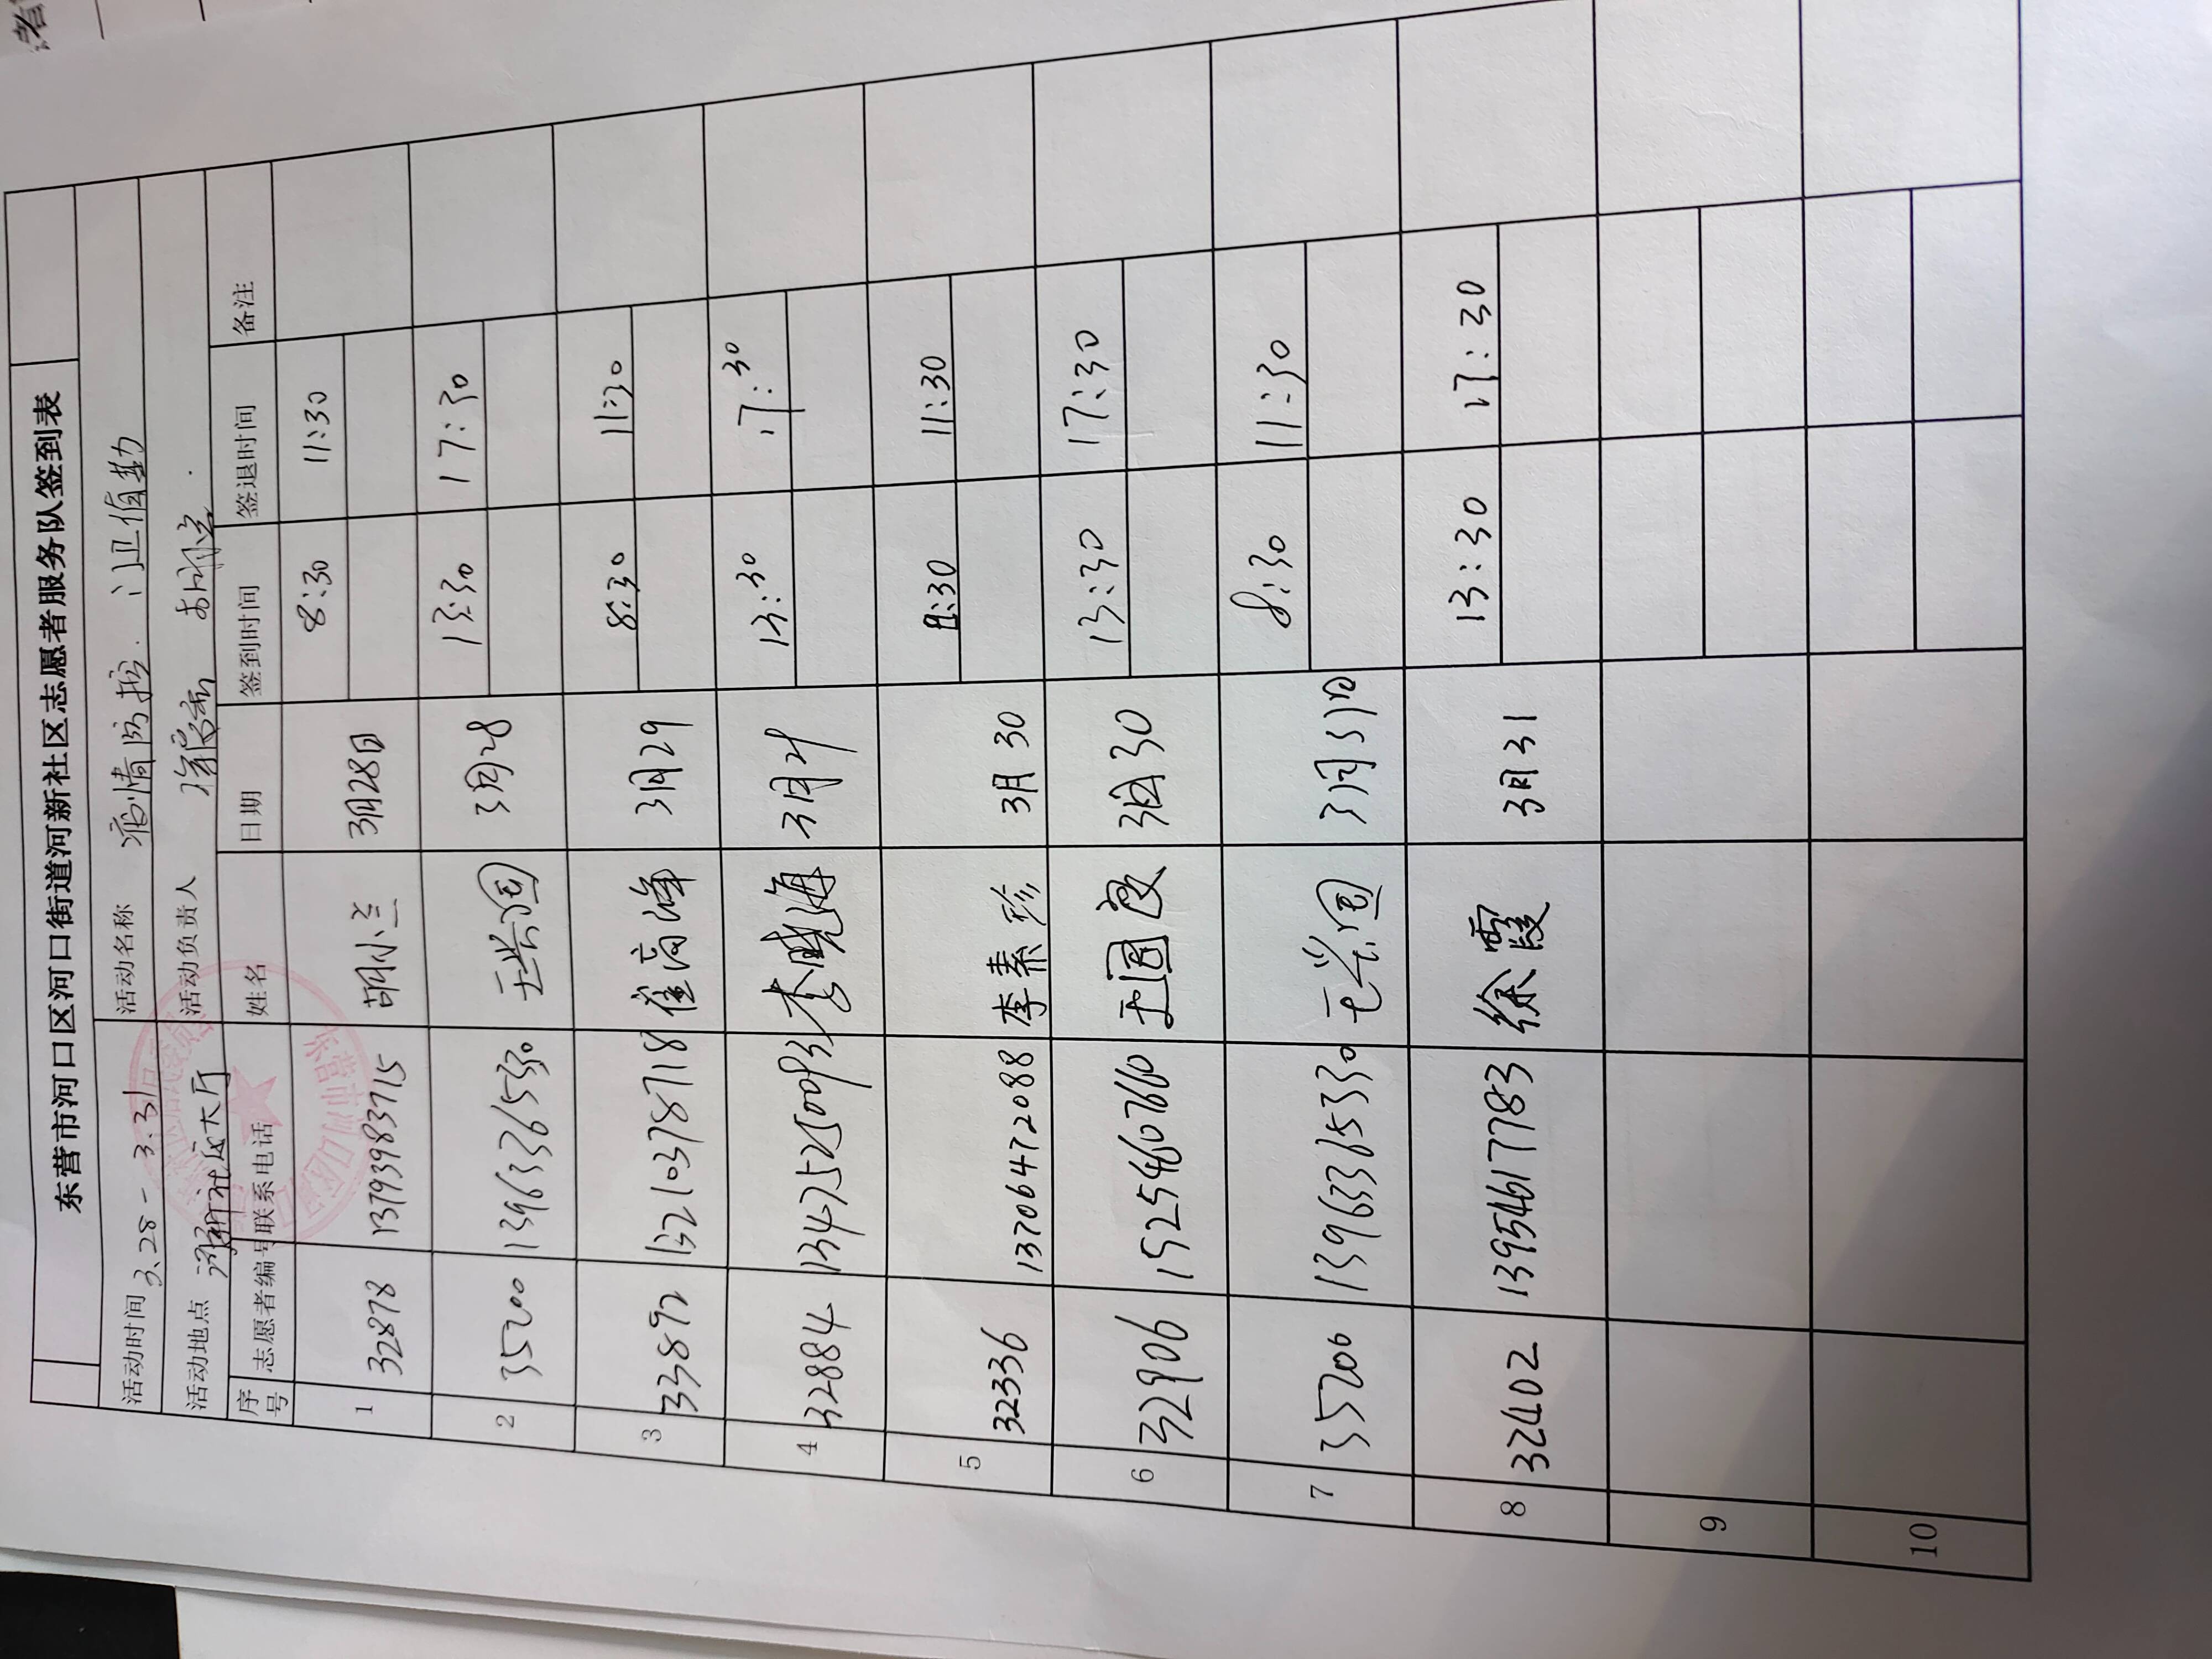 东营市河口区河口街道河新社区志愿者服务队签到表
活动时间 3.28-3.31 活动名称 疫情防控、门卫值勤
活动地点 河新社区大厅 活动负责人
序号 志愿者编号 联系电话 姓名 日期 签到时间 签退时间 备注
1 32878 13793983715 胡小兰 3月28日 8:30 11:30
2 35200 13963365330 王兴国 3月28 13:30 17:30
3 33892 13210378718 崔高峰 3月29 8:30 11:30
4 32884 李晓海 3月29 13:30 17:30
5 32336 13706472088 李素珍 3月30 8:30 11:30
6 32906 15254607660 王国良 3月30 13:30 17:30
7 35200 13963365330 王兴国 3月31日 8:30 11:30
8 32402 13954617783 徐霞 3月31 13:30 17:30
9
10